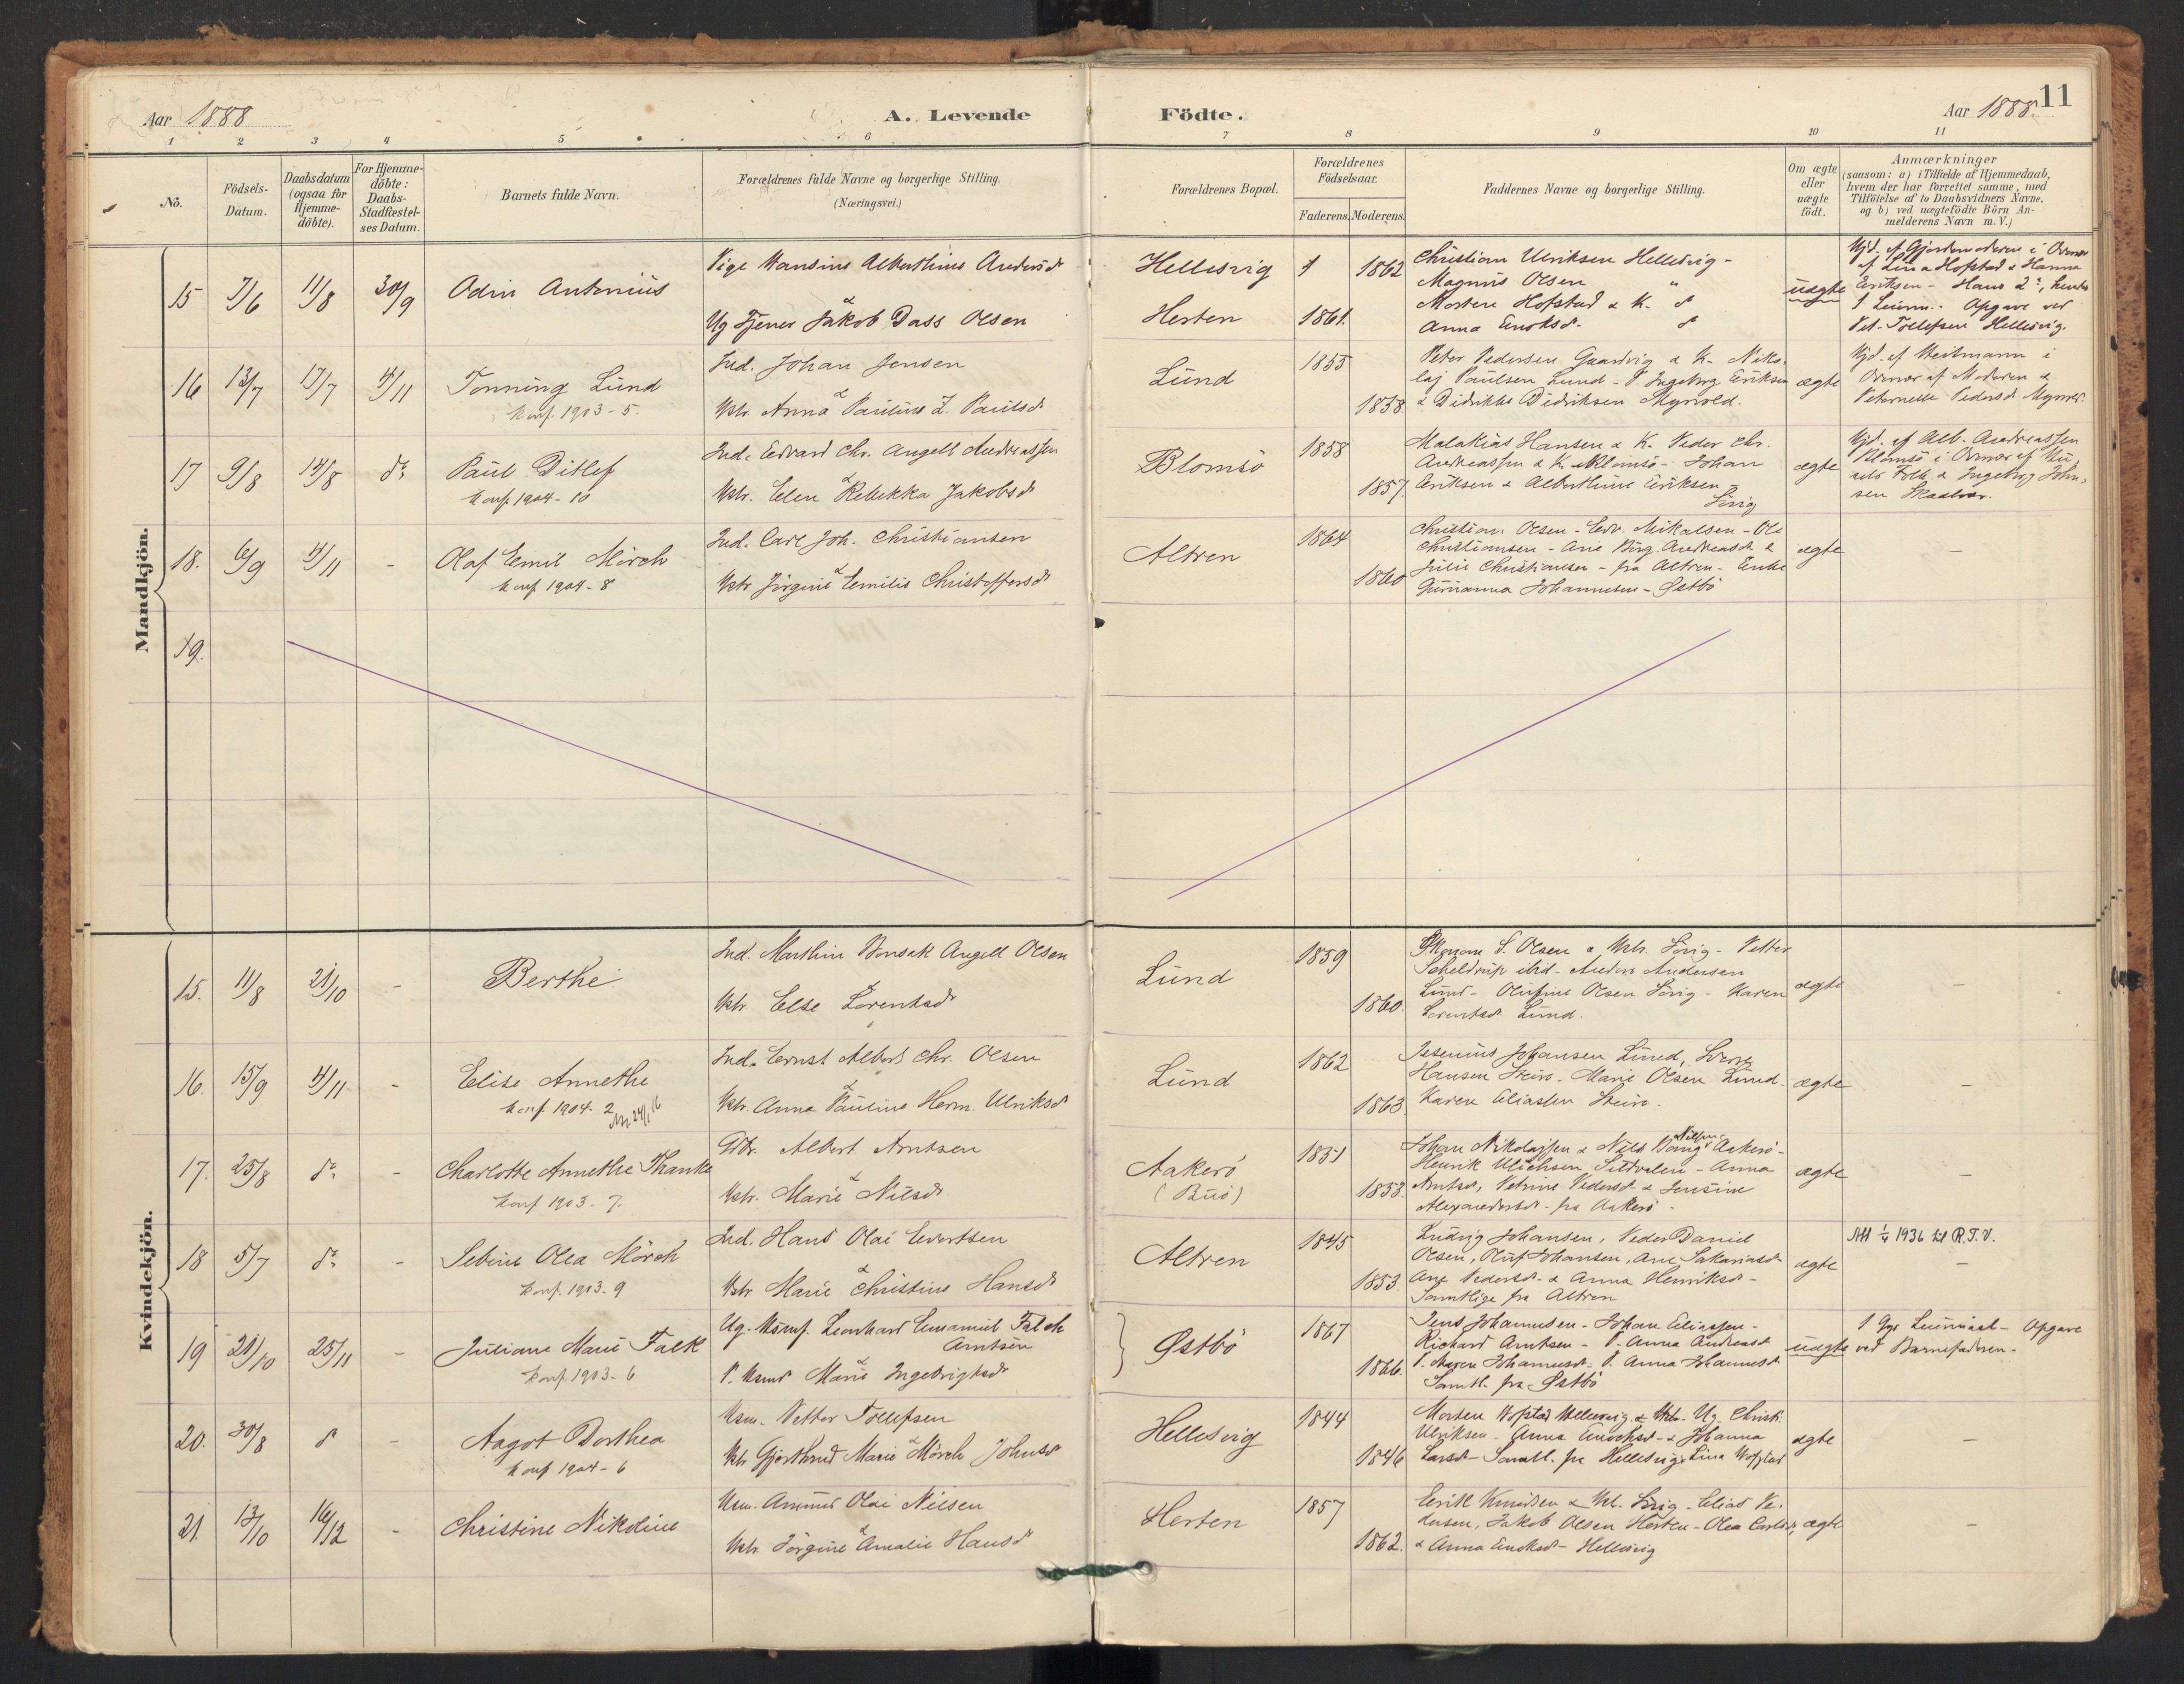 Aar 1888
A. Levende Födte.
Aar 1888. 11
1 2 3 4 5 6 7 8 9 10 11
No.
Födsels-Datum.
Daabsdatum (ogsaa for Hjemme-döbte).
For Hjemme-döbte: Daabs-Stadfæstel-ses Datum.
Barnets fulde Navn.
Forældrenes fulde Navne og borgerlige Stilling.
(Næringsvei.)
Forældrenes Bopæl.
Forældrenes Födselsaar.
Faderens. Moderens.
Faddernes Navne og borgerlige Stilling.
Om ægte eller uægte födt.
Anmærkninger
(saasom: a) i Tilfælde af Hjemmedaab,
hvem der har forrettet samme, med
Tilföielse af to Daabsvidners Navne,
og b) ved uægtefödte Börn An-
melderens Navn m. V.)
Mandkjön.
15 7/6 11/8 30/9 Odin Antonius
Pige Hansine Alberthine Andersd
&
Ug Tjener Jakob Dass Olsen
Hellesvig 1862
Herten 1861.
Christian Ulriksen Hellesvig -
Magnus Olsen "
Morten Hofstad & K.
Anna
uægte
Hjd. af Gjordemoderen i
af Lina Hofstad & Hanna
Eriksen - Hans 2,
1 Opgave ved
Pet. Tollefsen Hellesvig.
16 13/7 17/7 4/11 Tonning Lund
Konf. 1903-5.
Ind. Johan Jensen
&
Hstr. Anna Pauline Z. Paulsd.
Lund 1855
1858.
Peter Pedersen & K. Niko-
laj Paulsen Lund - P. Ingeborg Eriksen
& Didrikke Didriksen Myrvold.
ægte
Hjd. af Heitmann i
af Moderen &
Peternelle Pedersd.
17 9/8 14/8 do Paul Ditlef
Konf 1904-10
Ind. Edvard Chr. Angell Andreassen
&
Hstr. Elen Rebekka Jakobsd
Blomsö 1858
1857.
Malakias Hansen & K. Peder Chr.
Andreassen & K. Blomsö - Johan
Eriksen & Alberthine Eriksen
ægte
Hjd. af Alb. Andreassen
Blomsö i af
Falk & Ingeborg John-
sen
18. 6/9 4/11 - Olaf Emil Mörch
Konf 1904-8
Ind. Carl Joh. Christiansen
&
Hstr Jörgine Emilie Christoffersd
Altren 1864
1860
Christian Olsen - Edv. Mikalsen - Ole
Christiansen - Ane Birg. Andreasd. &
Julie Christiansen - fra Altren - Enke
Johannesen - Østbö
ægte -
19.
Kvindekjön.
15. 11/8 21/10 - Berthe
Ind. Marthin Bonsak Angell Olsen
&
Hstr Else Lorentsd
Lund 1859
1860.
S. Olsen & Hstr. - Petter
ibid - Anders Andersen
Lund - Olufine Olsen - Karen
Lorentsd Lund.
ægte -
16. 15/9 4/11 - Elise Annethe
Konf 1904-2
Ind. Ernst Albert Chr. Olsen
&
Hstr. Anna Pauline Herm. Ulriksd
Lund 1862
1863.
Jesenius Johansen Lund,
Hansen - Marie Olsen Lund -
Karen Eliassen
ægte -
17. 25/8 do - Charlotte Annethe Thanke
Konf 1903. 7.
Gbr. Albert Arntsen
&
Hstr. Marie Nilsd.
Aakerö
(Buö)
1851
1858.
Johan Nikolajsen & Nils Nilsen Aakerö -
Henrik Ulichsen - Anna
Arntsd, Petrine Pedersd & Jensine
Alexandersd - fra Aakerö -
ægte -
18 5/7 do - Sebine Olea Mörch
Konf. 1903-9
Ind. Hans Olai Evertsen
&
Hstr Marie Christine Hansd
Altren 1845
1853
Ludvig Johansen, Peder Daniel
Olsen, Oluf Johansen, Ane Sakariasd
Ane Pedersd. & Anna Henriksd -
Samtlige fra Altren
ægte
Att 1/4 1936 til R.T.V.
-
19 21/10 25/11 - Juliane Marie Falk
Konf. 1903-6
Ug. Leonhard Emanuel Falch
Arntsen
&
P. Marie Ingebrigtsd
Østbö 1867
1866.
Jens Johannesen - Johan Eliassen -
Richard Arntsen - P. Anna Andreasd
P. Maren Johannesd - P. Anna Johannesd
Samtl. fra Østbö
uægte
1 Ggs Leiermaal - Opgave
ved Barnefaderen -
20. 30/8 - Aagot Dorthea
Konf 1904-6
Hsm. Petter Tollefsen
&
Hstr Gjerthrud Marie Mörch Johnsd
Hellesvig 1844
1846
Morten Hofstad Hellesvig & Hstr - Ug. Christ.
Ulriksen - Anna & Johanna
Larsd - Samtl. fra Hellesvig, Lina Hofstad
ægte -
21. 13/10 16/12 - Christine Nikoline
Hsm. Olai Nilsen
&
Hstr. Jörgine Amalie Hansd
Herten 1857
1862.
Eerik Knudsen & - Elias Pe-
dersen, Jakob Olsen Herten - Olea Carlsd,
& Anna - Hellesvig
ægte -